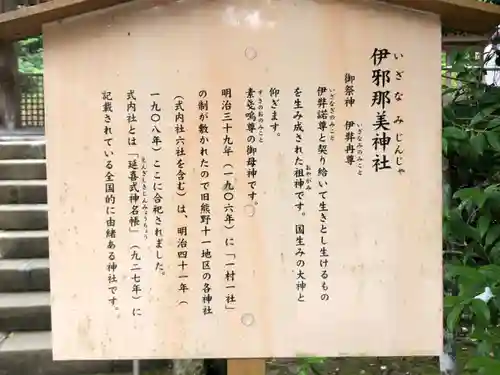 伊邪那美神社
いざなみじんじゃ
御祭神　伊弉冉尊
いざなみのみこと
伊弉諾尊と契り給いて生きとし生けるもの
いざなぎのみこと
を生み成された祖神です。国生みの大神と
おやがみ
仰ぎます。
素戔嗚尊の御母神です。
すさのおのみこと
明治三十九年（一九〇六年）に「一村一社」
の制が敷かれたので旧熊野十一地区の各神社
（式内社六社を含む）は、明治四十一年（
一九〇八年）ここに合祀されました。
式内社とは「延喜式神名帳」（九二七年）に
えんぎえしきじんみょうちょう
記載されている全国的に由緒ある神社です。